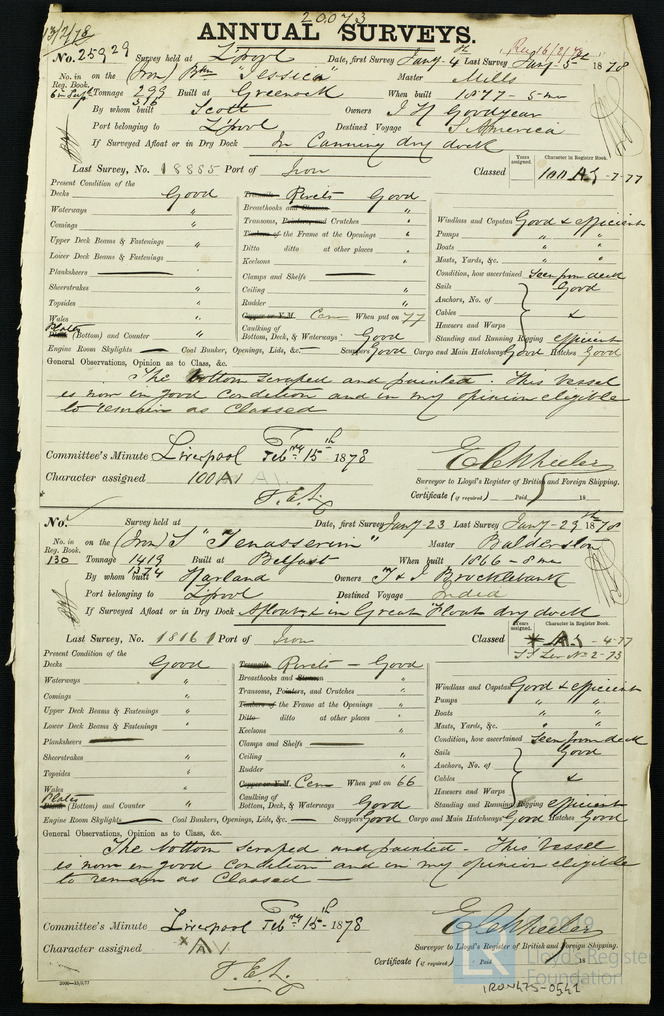 20073
13/2/78
ANNUAL SURVEYS.
No. 25929 Survey held at L'pool Date, first Survey Jany- 4th Last Survey Jany 5th 1878
No. in Reg. Book. on the (Iron) Bkn "Jessica" Master Mills
Tonnage 299 Built at Greenock When built 1877 - 5 mo
316
By whom built Scott Owners J H Goodyear
Port belonging to L'pool Destined Voyage S America
If Surveyed Afloat or in Dry Dock In Canning dry dock
Years assigned. Character in Register Book.
Last Survey, No. 18885 Port of Iron Classed 100 A1 -7-77
Present Condition of the
Decks Good Treenails Rivets Good
Waterways " Breasthooks and Stemson "
Comings " Transoms, Pointers, and Crutches "
Windlass and Capstan Good & efficient
Upper Deck Beams & Fastenings " Timbers of the Frame at the Openings "
Pumps " "
Lower Deck Beams & Fastenings Ditto ditto at other places "
Boats " "
Keelsons "
Masts, Yards, &c. " "
Planksheers Clamps and Shelfs
Condition, how ascertained Seen from deck
Sheerstrakes " Ceiling "
Sails Good
Topsides " Rudder "
Anchors, No. of
Wales " Copper or Y.M. Cem When put on 77
Cables &
Hawsers and Warps
Plates (Bottom) and Counter " Caulking of Bottom, Deck, & Waterways Good
Standing and Running Rigging efficient
Engine Room Skylights Coal Bunker, Openings, Lids, &c. Scuppers Good Cargo and Main Hatchways Good Hatches Good
General Observations, Opinion as to Class, &c.
The bottom scraped and painted. This Vessel
is now in good condition and in my opinion eligible
to remain as Classed
Committee's Minute Liverpool Feby 15th 1878
E C Wheeler
Character assigned 100A1 A1
Surveyor to Lloyd's Register of British and Foreign Shipping.
Certificate (if required) Paid 18
No. Survey held at Date, first Survey Jany-23 Last Survey Jany-29th 1878
No. in Reg. Book. on the (Iron) S "Tenasserim" Master Balderston
130 Tonnage 1419 Built at Belfast When built 1866 - 8 mo
1374
By whom built Harland Owners T & J Brocklebank
Port belonging to L'pool Destined Voyage India
If Surveyed Afloat or in Dry Dock Afloat & in Great Float dry dock
Years assigned. Character in Register Book.
Last Survey, No. Port of Iron Classed A1 -4-77
Present Condition of the
Decks Good Treenails Rivets - Good
Waterways " Breasthooks and Stemson "
Comings " Transoms, Pointers, and Crutches "
Windlass and Capstan Good & efficient
Upper Deck Beams & Fastenings " Timbers of the Frame at the Openings "
Pumps " "
Lower Deck Beams & Fastenings " Ditto ditto at other places "
Boats " "
Keelsons "
Masts, Yards, &c. " "
Planksheers Clamps and Shelfs
Condition, how ascertained Seen from deck
Sheerstrakes " Ceiling "
Sails Good
Topsides " Rudder "
Anchors, No. of
Wales " Copper or Y.M. Cem When put on 66
Cables &
Hawsers and Warps
Plates (Bottom) and Counter " Caulking of Bottom, Deck, & Waterways Good
Standing and Running Rigging efficient
Engine Room Skylights Coal Bunkers, Openings, Lids, &c. Scuppers Good Cargo and Main Hatchways Good Hatches Good
General Observations, Opinion as to Class, &c.
The bottom scraped and painted - This Vessel
is now in good condition and in my opinion eligible
to remain as Classed
Committee's Minute Liverpool Feby 15th 1878
E C Wheeler
Character assigned A1
Surveyor to Lloyd's Register of British and Foreign Shipping.
Certificate (if required) Paid 18
2019
LR Lloyd's Register Foundation
IRON475-0541